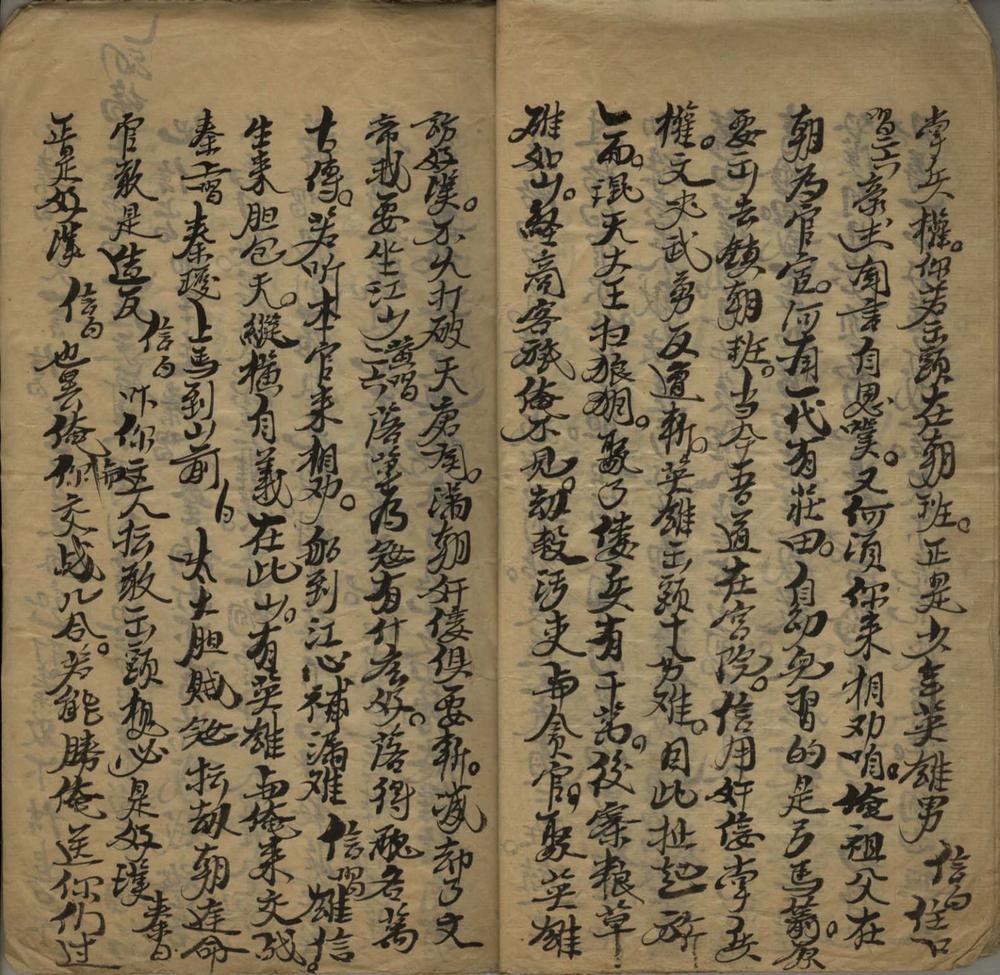 掌兵權。你若出頭在朝班。正是少年英雄男 信白 住口
唱六 豪杰聞言自思嘆。又何須你来相劝咱。俺祖父在
朝為官宦。何有一代有莊田。自幼兒習的是弓馬箭。原
要出去鎮朝班。当今吾道在宮院。信用奸佞掌兵
權。文武勇反遭斬。英雄出頭十分难。因此扯起
混天大王扫狼烟。聚了倭兵有千萬。後寨粮草
堆如山。經商客旅俺不見。劫殺污吏与貪官。聚英雄
訪好漢。不久打破天唐関。滿朝奸佞俱要斬。滅却了文
帝我要坐江山 黃唱六 落草為寇有什広好。落得醜名萬
古傳。若听本官来相劝。船到江心補漏难 信唱 雄信
生来胆包天。縱横自義在此山。有英雄与俺来交战。
秦唱 秦瓊上馬到山前 白 大大胆賊寇 抗敢朝廷命
官敢是造反 信白 咋你主人抗敢出頭想必是好漢 秦白
正是好漢 信白 也罢俺你交战几合。若能勝俺送你們过